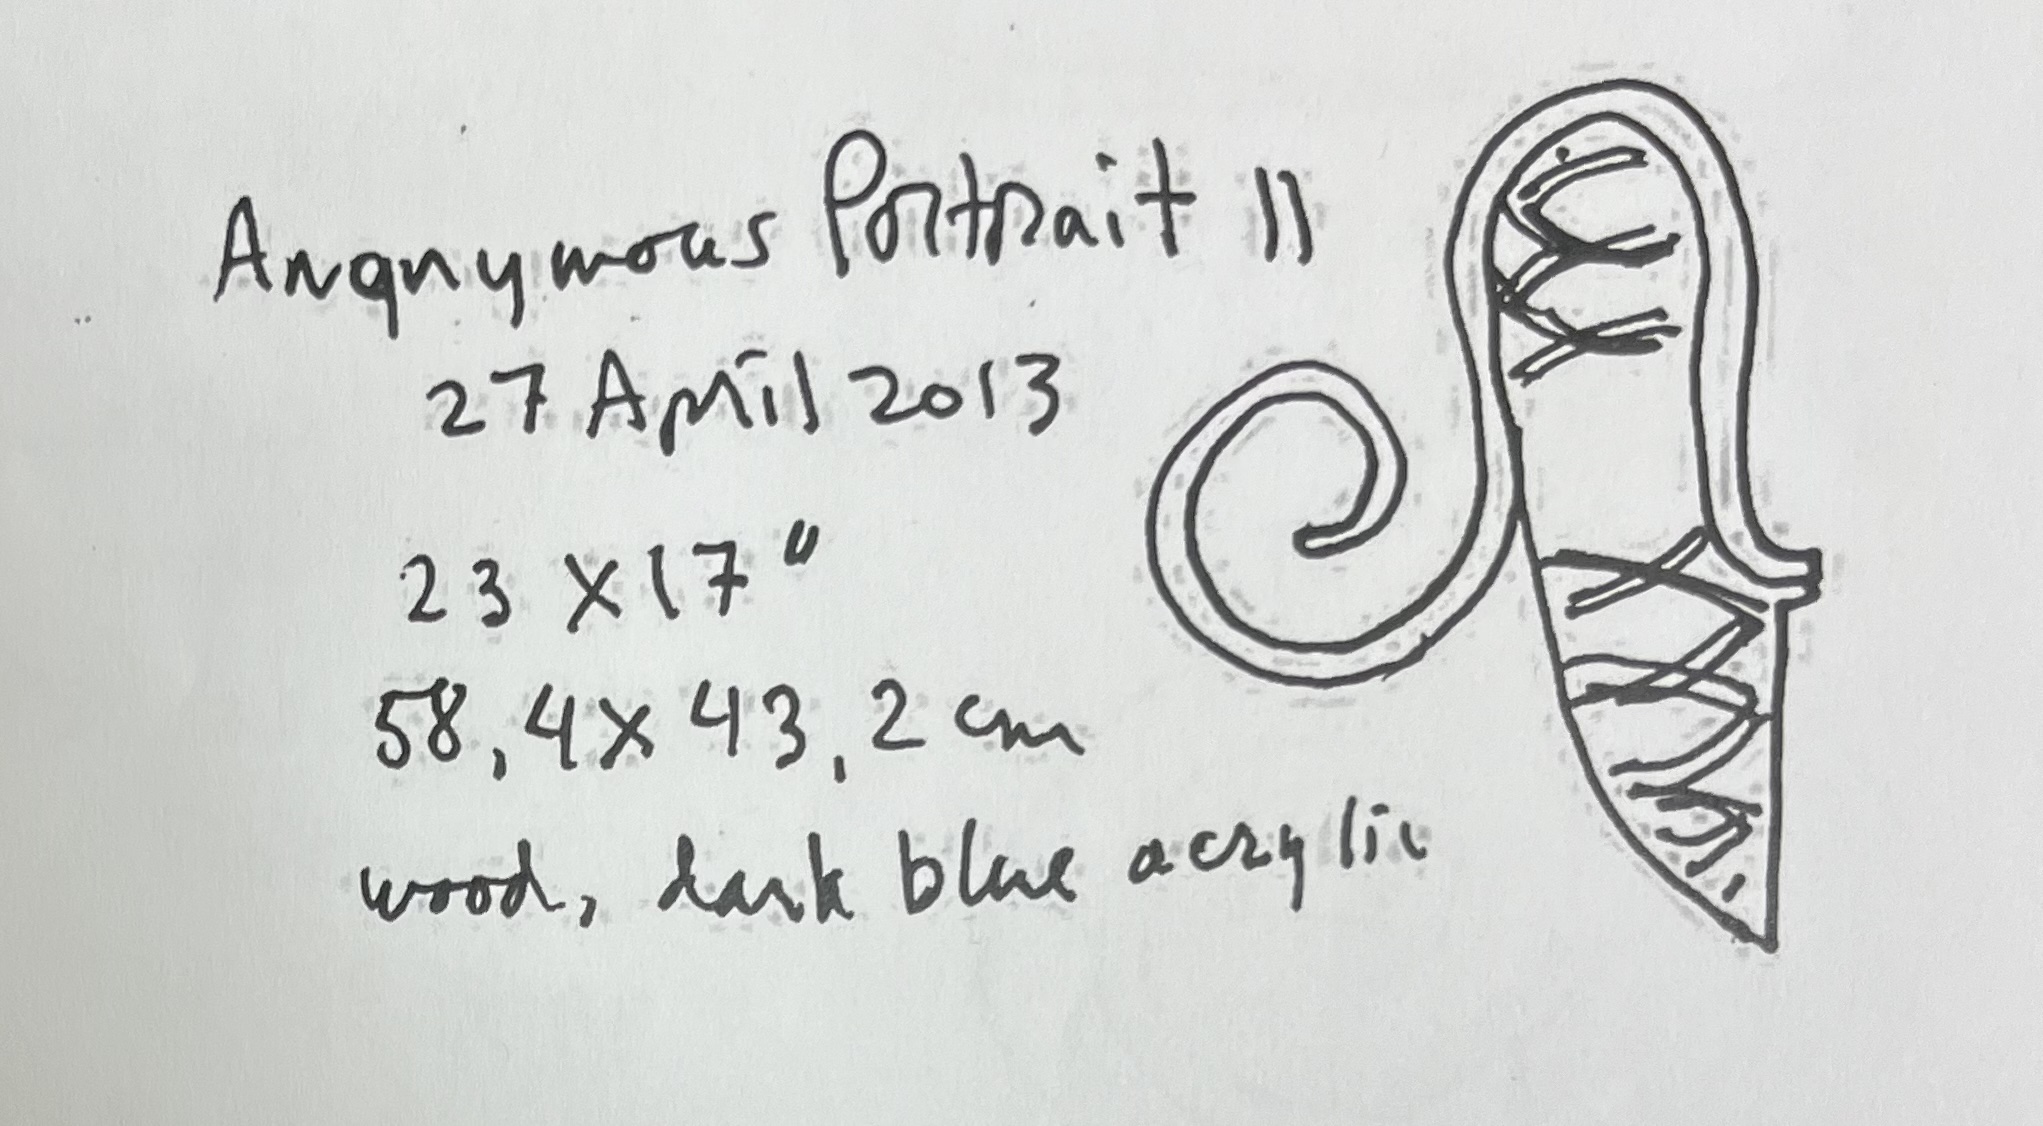 Anonymous Portrait II
27 April 2013
23 x 17"
58,4 x 43,2 cm
wood, dark blue acrylic